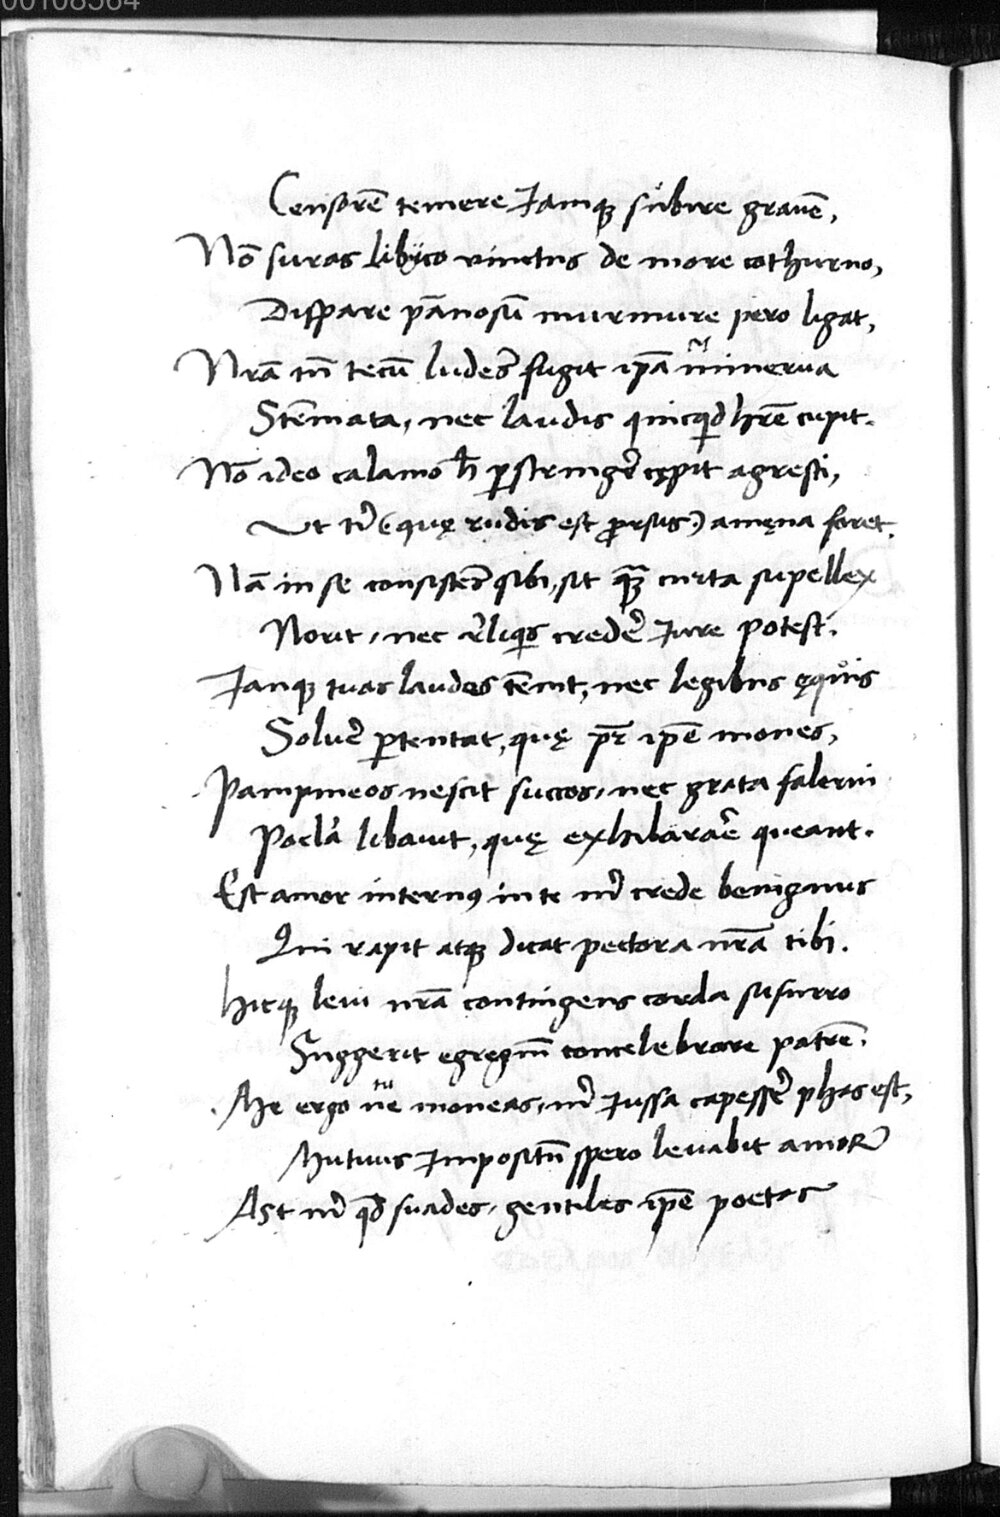 00108564
Censorē temere Jamqꝫ subire grauē,
Nō suras libyco uinctus de more cothurno,
Dispare pānosū murmure pero ligat,
Nrā tn̄ tecū luder̃ fugit ip̄a minerua
Stēmata, nec laudis quicq̨d hrē cupit.
Nō ideo calamo h̄ ꝑstringer̃ cępit agresti,
Ut tr̃ (quę rudis est ꝓrsus) amęna foret.
Nā in se consister̃ sibi, sit quā curta supellex
Norit, nec r̃liquis creder̃ Jure potest.
Janqꝫ tuas laudes tēnit, nec legibus ęquis
Soluer̃ ꝑtentat, quę pr̄ ip̄e mones,
Pampineos nescit succos, nec grata falerni
Pocla libauit, quę exhilararē queant.
Est amor internꝰ in te m̃ crede benignus
Qui rapit atqꝫ dicat pectora nrā tibi.
Hicqꝫ leui nrā contingens corda susurro
Suggerit egregiū concelebrare patrē.
Me ergo tu ne moneas, m̃ Jussa capesser̃ phas est,
Mutuus Impositū spero leuabit amor
Ast m̃ qd̄ suades, gentiles ip̄e poetas